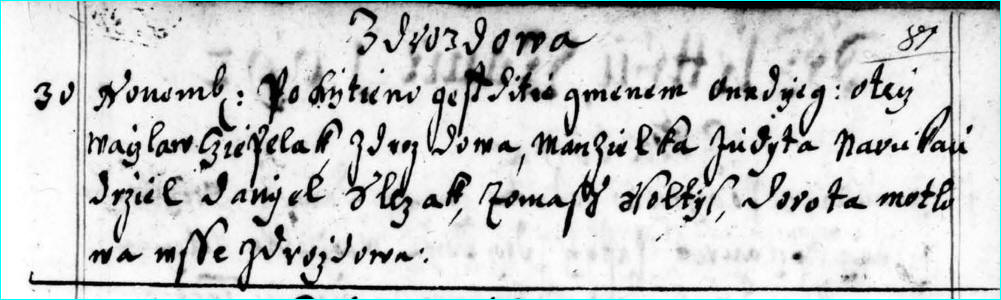 Zdrozdowa
87
30 Novemb: Pokrtieno gest ditie gmenem Ondrzeg: otecz
Waczlaw Cziepelak, Zdrozdowa, Manzielka Judyta Na rukau
drziel Danyel Slezak, Tomass Soltys, Dorota motlo
wa wsse Zdrozdowa.